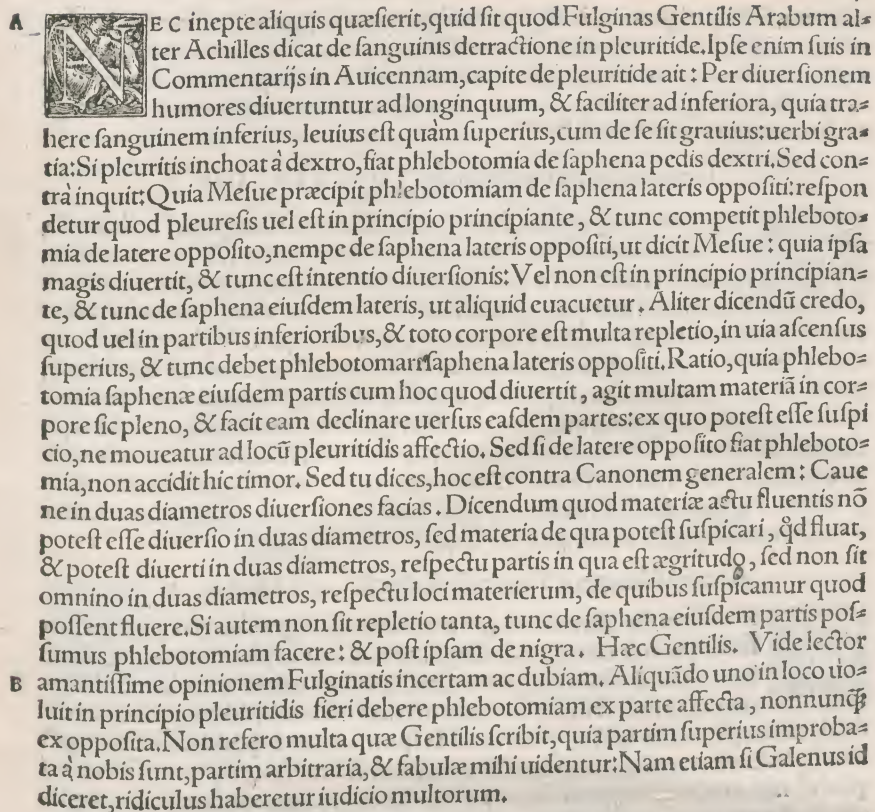 A NEC inepte aliquis quæſierit, quid ſit quod Fulginas Gentilis Arabum al⸗
ter Achilles dicat de ſanguinis detractione in pleuritide. Ipſe enim ſuis in
Commentarijs in Auicennam, capite de pleuritide ait: Per diuerſionem
humores diuertuntur ad longinquum, & faciliter ad inferiora, quia tra⸗
here ſanguinem inferius, leuius eſt quàm ſuperius, cum de ſe ſit grauius: uerbi gra⸗
tia: Si pleuritis inchoat à dextro, fiat phlebotomia de ſaphena pedis dextri. Sed con⸗
trà inquit: Quia Meſue præcipit phlebotomiam de ſaphena lateris oppoſiti: reſpon
detur quod pleureſis uel eſt in principio principiante, & tunc competit phleboto⸗
mia de latere oppoſito, nempe de ſaphena lateris oppoſiti, ut dicit Meſue: quia ipſa
magis diuertit, & tunc eſt intentio diuerſionis: Vel non eſt in principio principian⸗
te, & tunc de ſaphena eiuſdem lateris, ut aliquid euacuetur. Aliter dicendũ credo,
quod uel in partibus inferioribus, & toto corpore eſt multa repletio, in uia aſcenſus
ſuperius, & tunc debet phlebotomari ſaphena lateris oppoſiti. Ratio, quia phlebo⸗
tomia ſaphenæ eiuſdem partis cum hoc quod diuertit, agit multam materiã in cor⸗
pore ſic pleno, & facit eam declinare uerſus eaſdem partes: ex quo poteſt eſſe ſuſpi
cio, ne moueatur ad locũ pleuritidis affectio. Sed ſi de latere oppoſito fiat phleboto⸗
mia, non accidit hic timor. Sed tu dices, hoc eſt contra Canonem generalem: Caue
ne in duas diametros diuerſiones facias. Dicendum quod materiæ actu fluentis nõ
poteſt eſſe diuerſio in duas diametros, ſed materia de qua poteſt ſuſpicari, q̃d fluat,
& poteſt diuerti in duas diametros, reſpectu partis in qua eſt ægritudo, ſed non ſit
omnino in duas diametros, reſpectu loci materierum, de quibus ſuſpicamur quod
poſſent fluere. Si autem non ſit repletio tanta, tunc de ſaphena eiuſdem partis poſ⸗
ſumus phlebotomiam facere: & poſt ipſam de nigra. Hæc Gentilis. Vide lector
B amantiſſime opinionem Fulginatis incertam ac dubiam. Aliquãdo uno in loco uo⸗
luit in principio pleuritidis fieri debere phlebotomiam ex parte affecta, nonnunq̃
ex oppoſita. Non refero multa quæ Gentilis ſcribit, quia partim ſuperius improba⸗
ta à nobis ſunt, partim arbitraria, & fabulæ mihi uidentur: Nam etiam ſi Galenus id
diceret, ridiculus haberetur iudicio multorum.